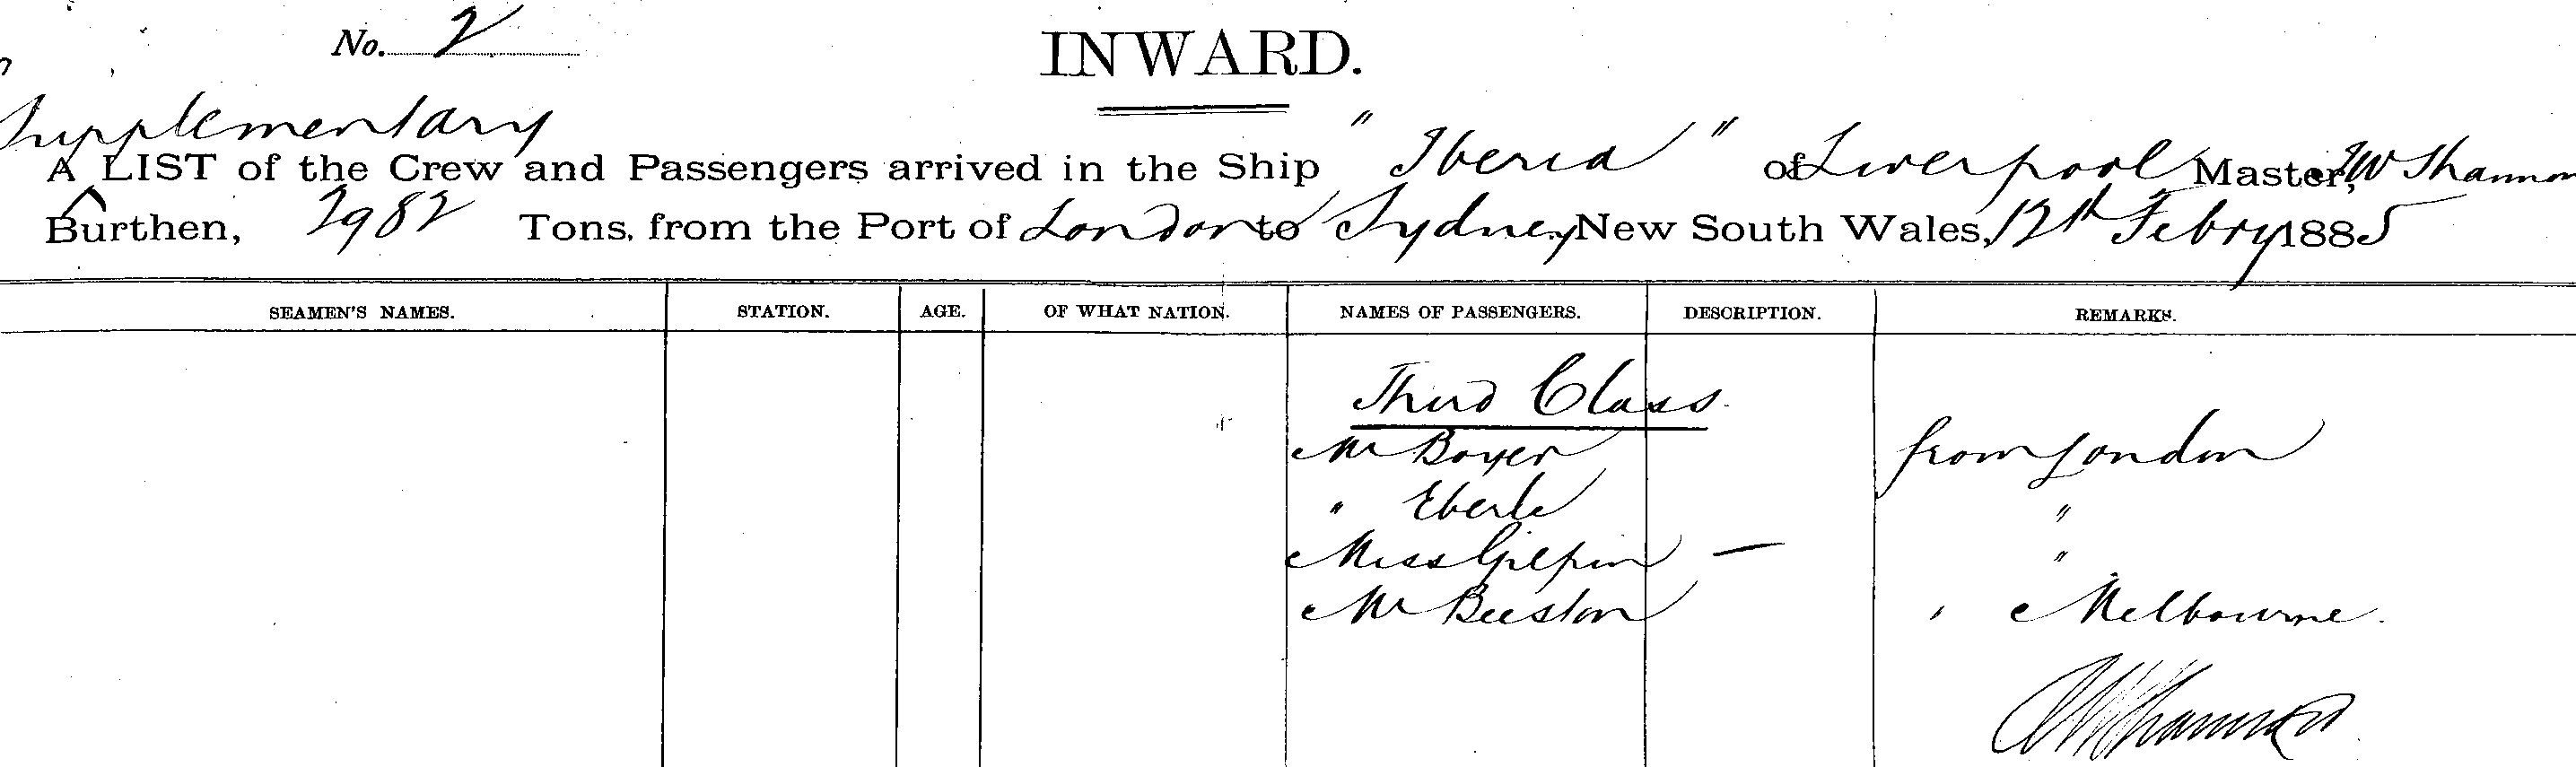 No. 2
INWARD.
Supplementary
A LIST of the Crew and Passengers arrived in the Ship "Iberia" of Liverpool Master, W Shannon
Burthen, 2982 Tons, from the Port of London to Sydney New South Wales, 12th Febry 1885
SEAMEN'S NAMES. STATION. AGE. OF WHAT NATION. NAMES OF PASSENGERS. DESCRIPTION. REMARKS.
Third Class
Mr Boyer from London
" Eberle "
Miss Gilpin — "
Mr Beeston " Melbourne.